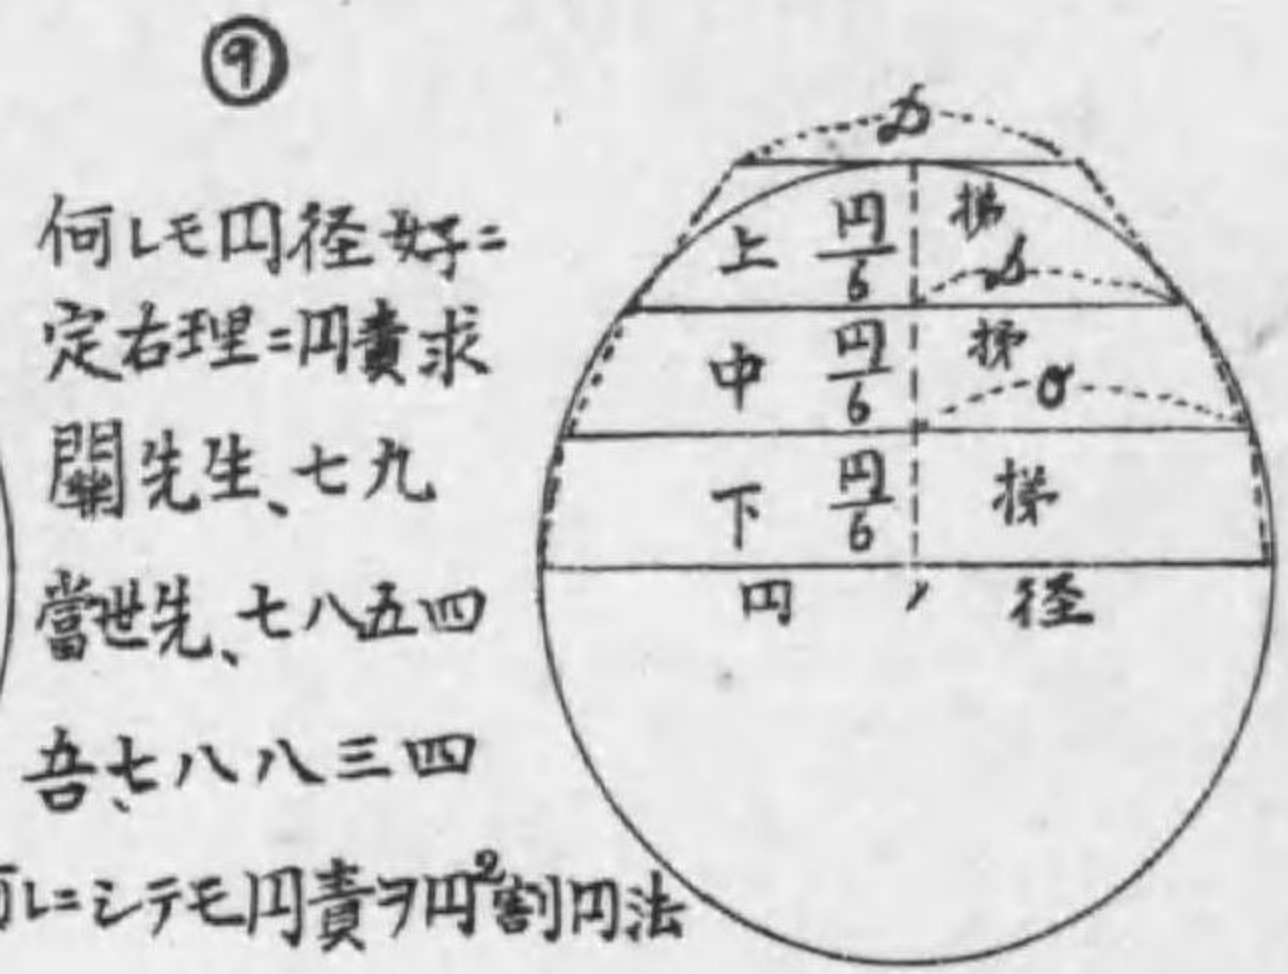 ⑨
何レモ円径好ニ
定右理ニ円責求
関先生、七九
當世先、七八五四
吾、七八八三四
レニシテモ円責ヲ円²割円法
上 円/6 梯
中 円/6 梯
下 円/6 梯
円 径